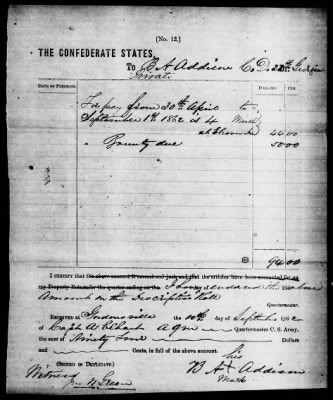 [No. 12.]
THE CONFEDERATE STATES,
To B A Addison Co. D. Georgia
Private
DATE OF PURCHASE. DOLLARS. CTS.
For pay from 30th April to
September 1st 1862 is 4 Months
at 44 00
" Bounty due 50 00
94 00
I CERTIFY that the above account is correct and just; and that the articles have been accounted for on
my Property Return for the quarter ending on the endorsed the above
Amount on the Descriptive Roll
Quartermaster.
RECEIVED at Gordonsville the 10th day of September 1862
of Capt A Elhart AQM Quartermaster C. S. Army,
the sum of Ninety Four Dollars
and Cents, in full of the above account.
(SIGNED IN DUPLICATE.) his
Witness B A + Addison
W Green Mark